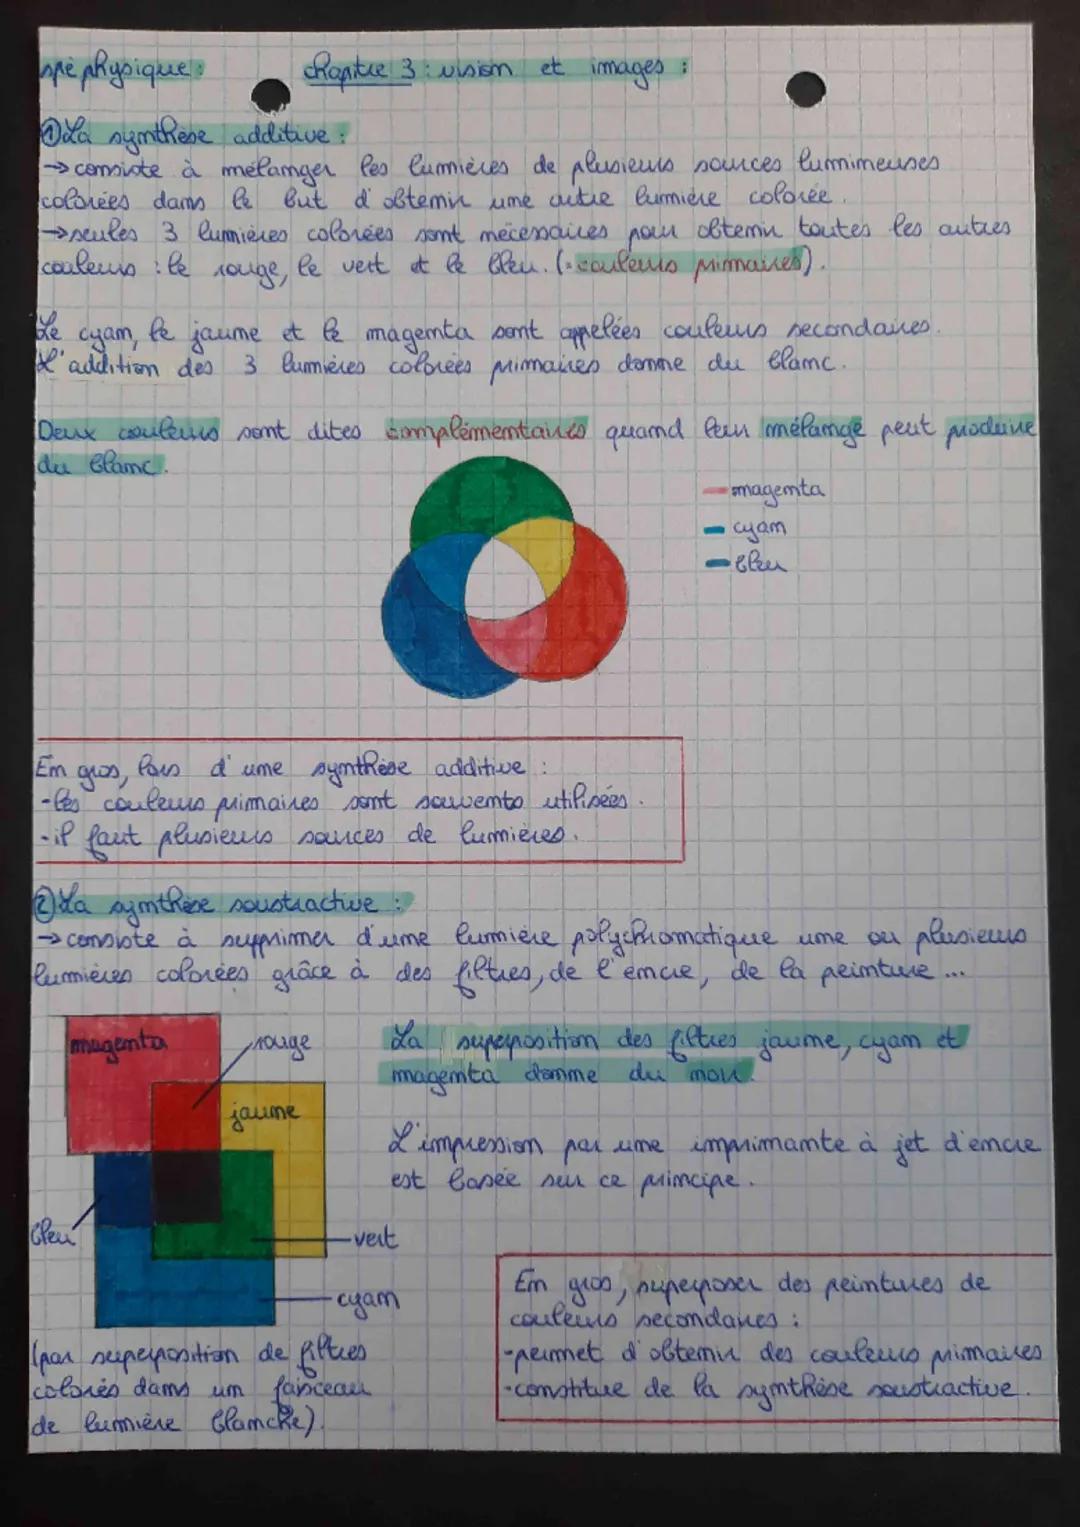 spé physique :
chapitre 3 : vision et images :
① La synthèse additive :
→ consiste à mélanger les lumières de plusieurs sources lumineuses
colorées dans le but d'obtenir une autre lumière colorée.
→ seules 3 lumières colorées sont nécessaires pour obtenir toutes les autres
couleurs : le rouge, le vert et le bleu. (= couleurs primaires).
Le cyan, le jaune et le magenta sont appelées couleurs secondaires.
L'addition des 3 lumières colorées primaires donne du blanc.
Deux couleurs sont dites complémentaires quand leur mélange peut produire
du blanc.
- magenta
- cyan
- bleu
En gros, lors d'une synthèse additive :
- les couleurs primaires sont souvents utilisées.
- il faut plusieurs sources de lumières.
② La synthèse soustractive :
→ consiste à supprimer d'une lumière polychromatique une ou plusieurs
lumières colorées grâce à des filtres, de l'encre, de la peinture ...
magenta
rouge
jaune
bleu
vert
cyan
(par superposition de filtres
colorés dans un faisceau
de lumière blanche).
La superposition des filtres jaune, cyan et
magenta donne du noir.
L'impression par une imprimante à jet d'encre
est basée sur ce principe.
En gros, superposer des peintures de
couleurs secondaires :
- permet d'obtenir des couleurs primaires
- constitue de la synthèse soustractive.